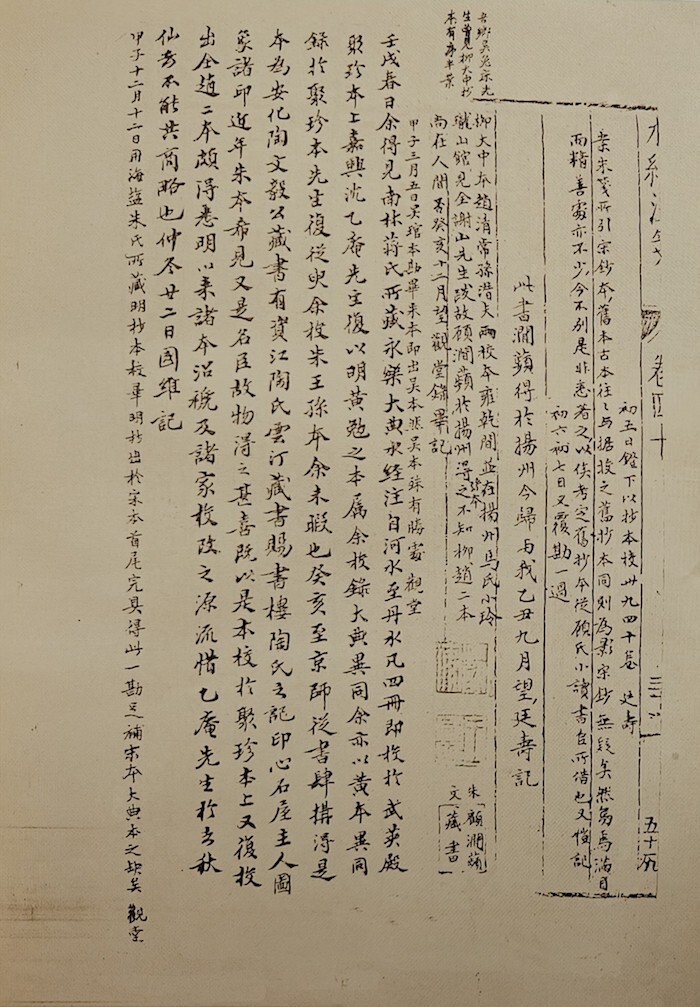 水經注箋 卷四十 三 五十八
初五日鐙下以抄本校卅九四十卷 廷壽
案朱箋所引宋鈔本舊本古本往〻与据校之舊抄本同則為影宋鈔無疑矣然舄焉滿目
而精善處亦不少今不別是非悉著之以俟考定舊抄本從顧氏小讀書臺所借也又愷記
初六初七日又覆勘一過
此書澗薲得於揚州今歸与我乙丑九月望廷壽記
吾鄉吳兔牀先
生曾見柳大中抄
本有序半葉
柳大中本趙清常孫潛夫兩校本雍乾間並在揚州馬氏小玲
瓏山館見全謝山先生跋故顧澗薲於揚州得之不知柳趙二本
尚在人間否癸亥十二月望觀堂錄畢記
甲子三月五日吳琯本勘畢朱本即出吳本然吳本殊有勝處 觀堂
朱 顧澗薲
文 藏書
壬戌春日余得見南林蔣氏所藏永樂大典水經注自河水至丹水凡四冊即校於武英殿
聚珍本上嘉興沈乙庵先生復以明黃勉之本屬余校錄大典異同余亦以黃本異同
錄於聚珍本先生復從臾余校朱王孫本余未暇也癸亥至京師從書肆搆得是
本為安化陶文毅公藏書有資江陶氏雲汀藏書賜書樓陶氏之記印心石屋主人圖
象諸印近年朱本希見又是名臣故物得之甚喜既以是本校於聚珍本上又復校
出全趙二本頗得悉明以來諸本沿褫及諸家校改之源流惜乙庵先生於去秋
仙去不能共商略也仲冬廿二日國維記
甲子十二月十二日用海鹽朱氏所藏明抄本校畢明抄出於宋本首尾完具得此一勘足補宋本大典本之缺矣 觀堂